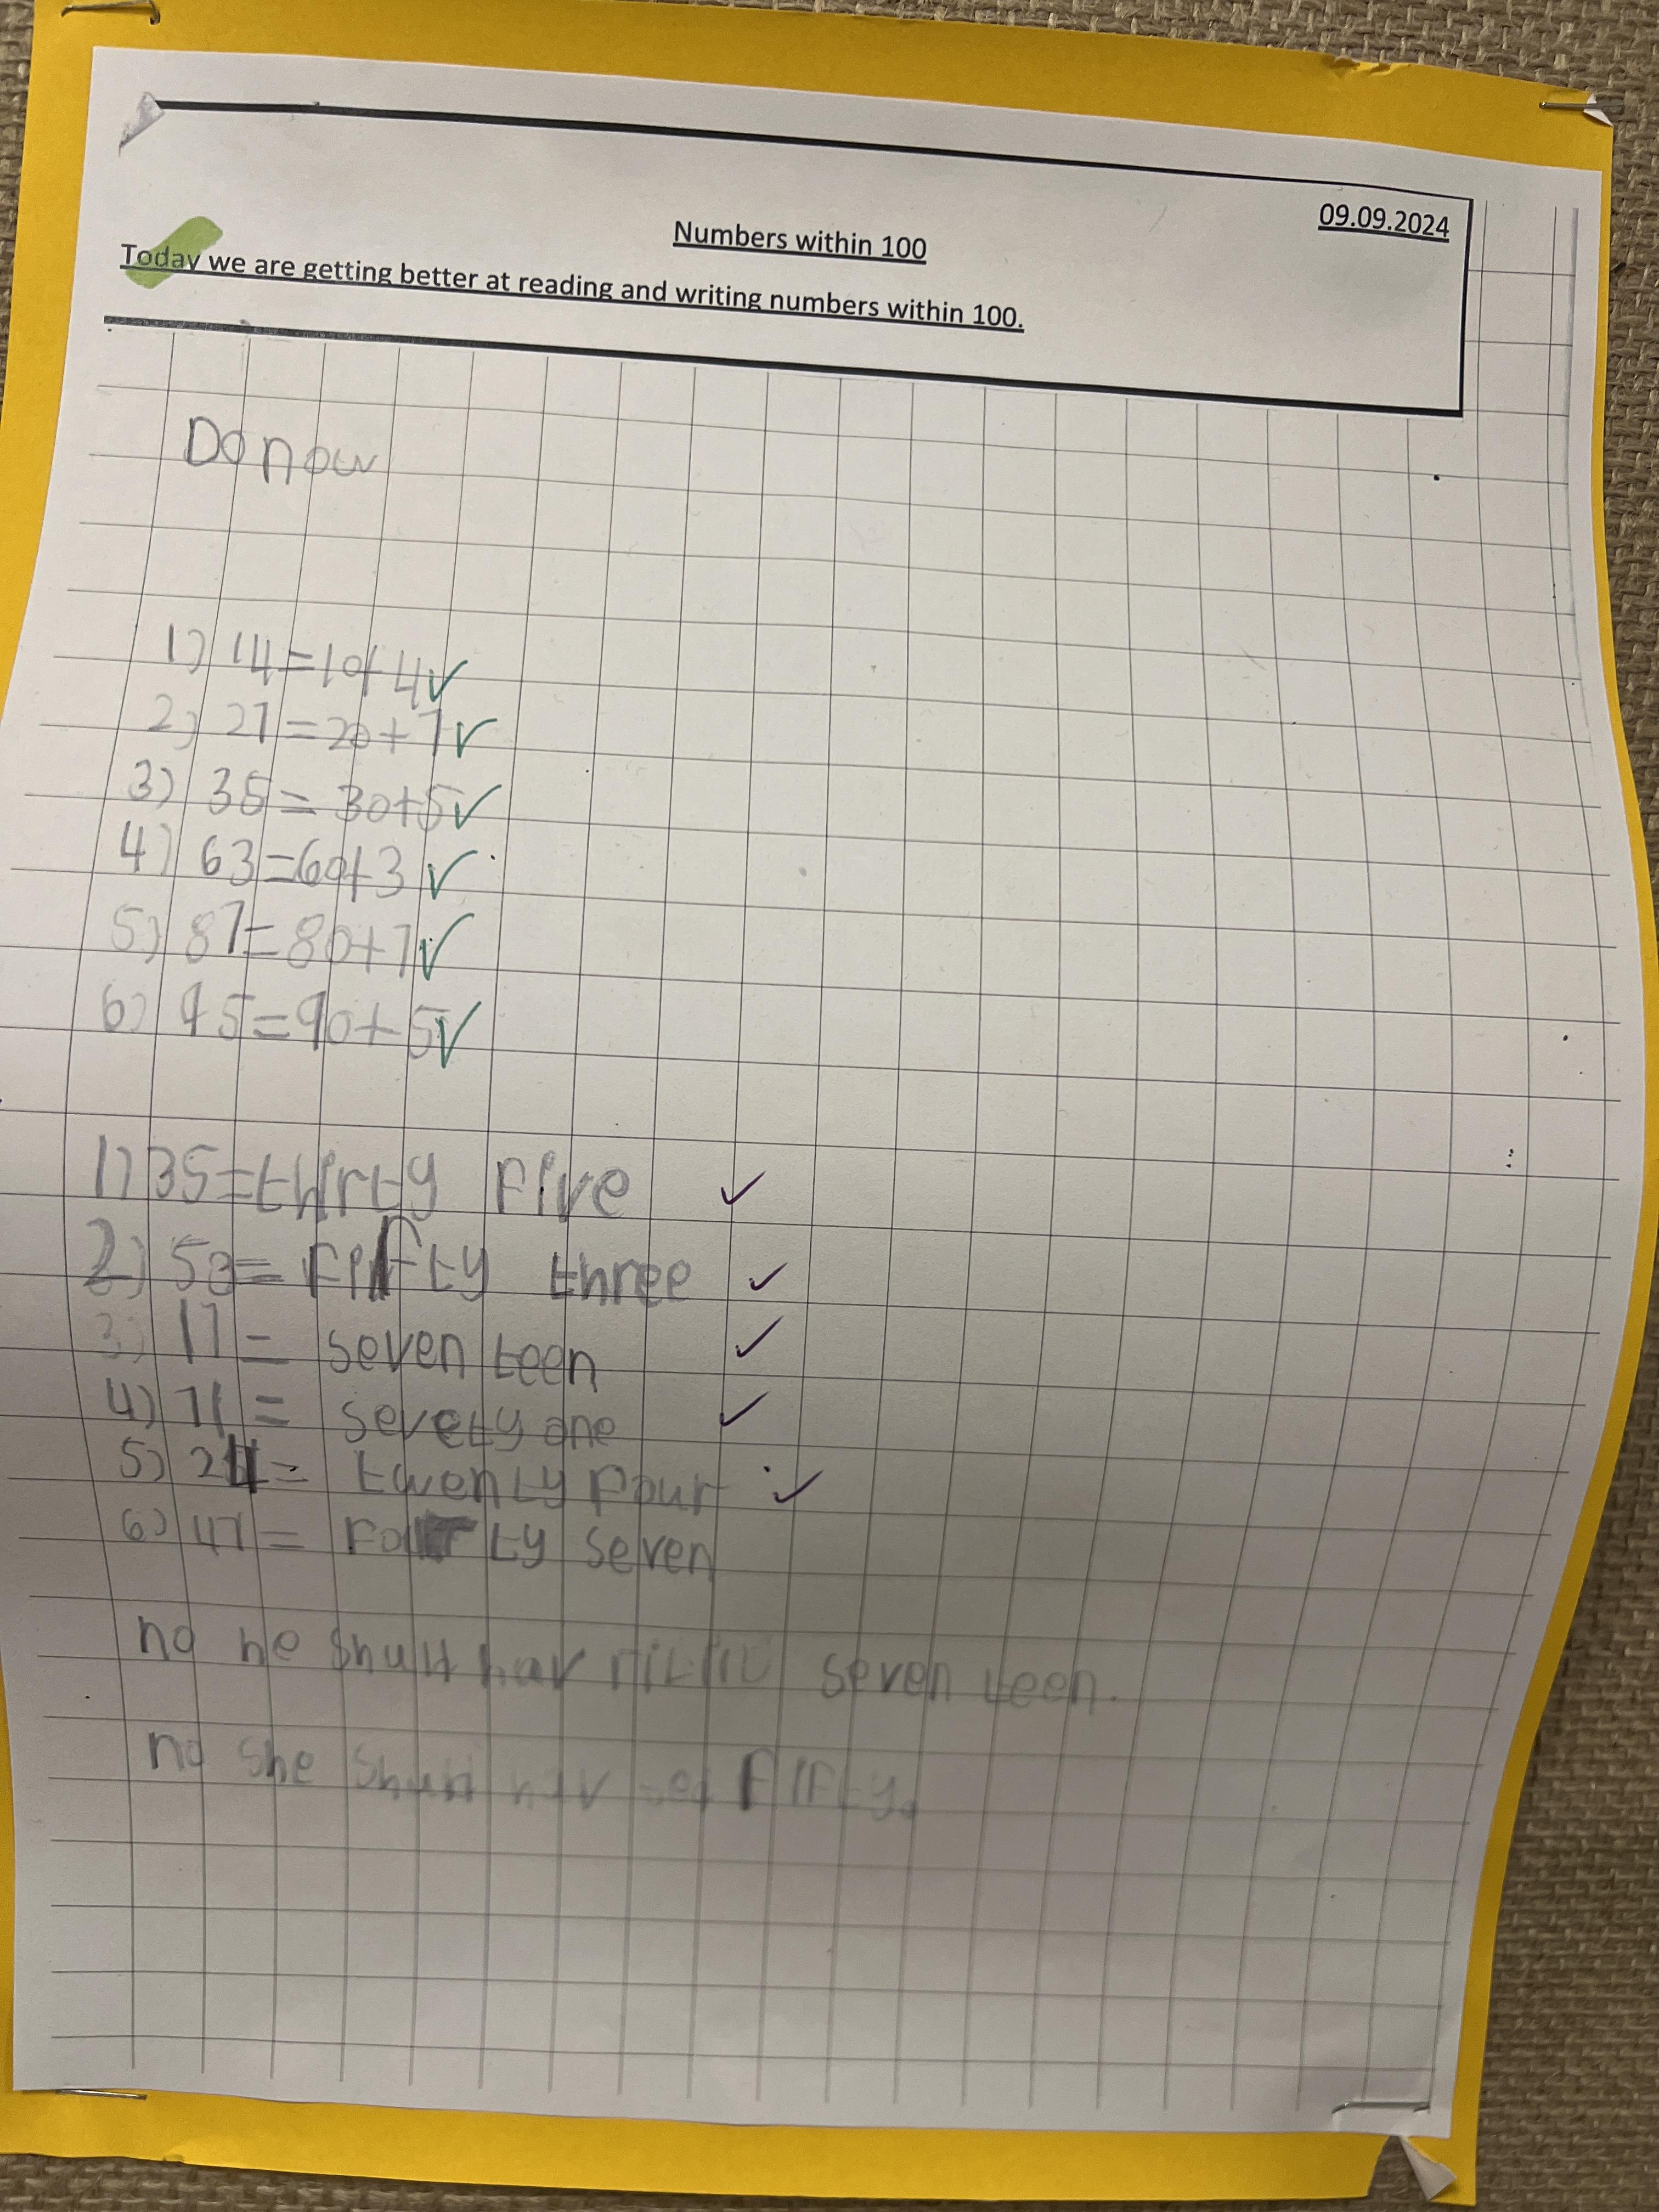 09.09.2024
Numbers within 100
Today we are getting better at reading and writing numbers within 100.
Do now
1) 14=10+4
2) 27=20+7
3) 35=30+5
4) 63=60+3
5) 87=80+7
6) 95=90+5
1) 35=thirty five
2) 53= fifty three
3) 17= seven teen
4) 71= sevety one
5) 24= twenty four
6) 47= forty seven
no he shult hav seven teen.
no she hav fifty.